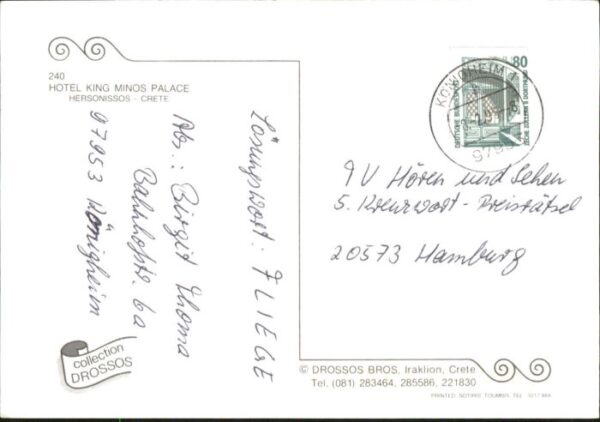 240
HOTEL KING MINOS PALACE
HERSONISSOS - CRETE
Lösungswort: FLIEGE
Abs.: Birgit Thoma
Bahnhofstr. 6a
97953 Königheim
80
DEUTSCHE BUNDESPOST
ZECHE ZOLLERN II DORTMUND
KÖNIGHEIM 1
TV Hören und Sehen
5. Kreuzwort-Preisrätsel
20573 Hamburg
collection
DROSSOS
© DROSSOS BROS, Iraklion, Crete
Tel. (081) 283464, 285586, 221830